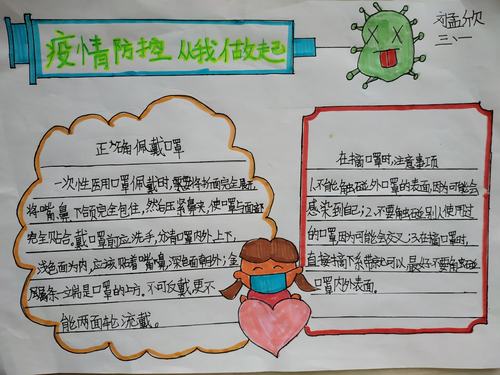 疫情防控 从我做起
刘孟欣
三、一
正确佩戴口罩
一次性医用口罩佩戴时,要将折面完全展开
将嘴鼻下颌完全包住,然后压紧鼻夹,使口罩与面部
完全贴合。戴口罩前应洗手,分清口罩内外上下,
浅色面为内,应该贴着嘴鼻,深色面朝外;金
属条一端是口罩的上方。不可反戴,更不
能两面轮流戴。
在摘口罩时,注意事项
1.不能触碰外口罩的表面,因为可能会
感染到自己;2.不要触碰别人使用过
的口罩因为可能会交叉;3.在摘口罩时,
直接摘下系带就可以最好不要触碰
口罩内外表面。